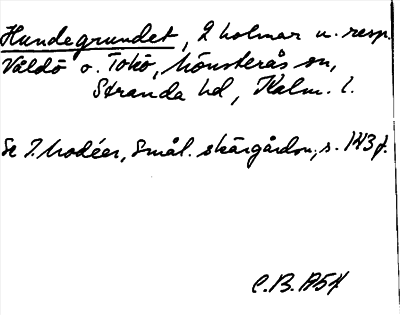 Hundegrundet, 2 holmar n. resp.
Våldö o. Tokö, Mönsterås sn,
Stranda hd, Kalm. l.
Se I. Modéer, Smål. skärgårdsn., s. 143 f.
C.B. 1954